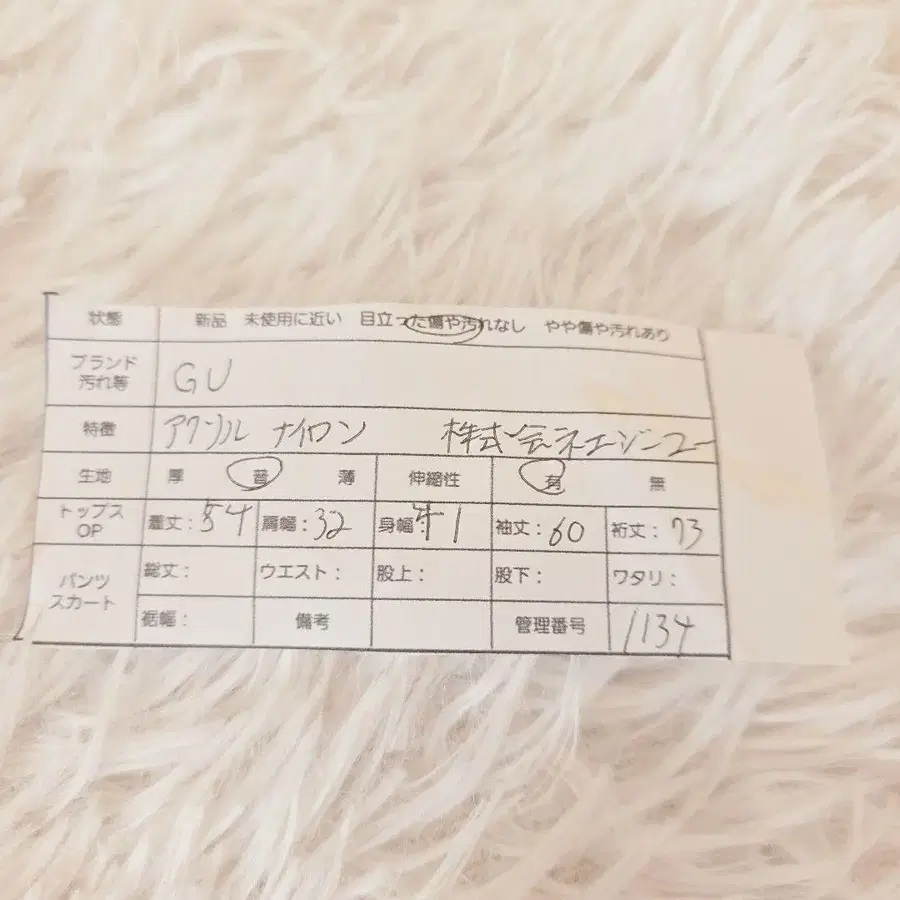 状態 新品 未使用に近い 目立った傷や汚れなし やや傷や汚れあり
ブランド 汚れ等 GU
特徴 アクリル ナイロン 株式会社ジーユー
生地 厚 普 薄 伸縮性 有 無
トップス OP 着丈:54 肩幅:32 身幅:41 袖丈:60 裄丈:73
パンツ スカート 総丈: ウエスト: 股上: 股下: ワタリ:
裾幅: 備考 管理番号 1134